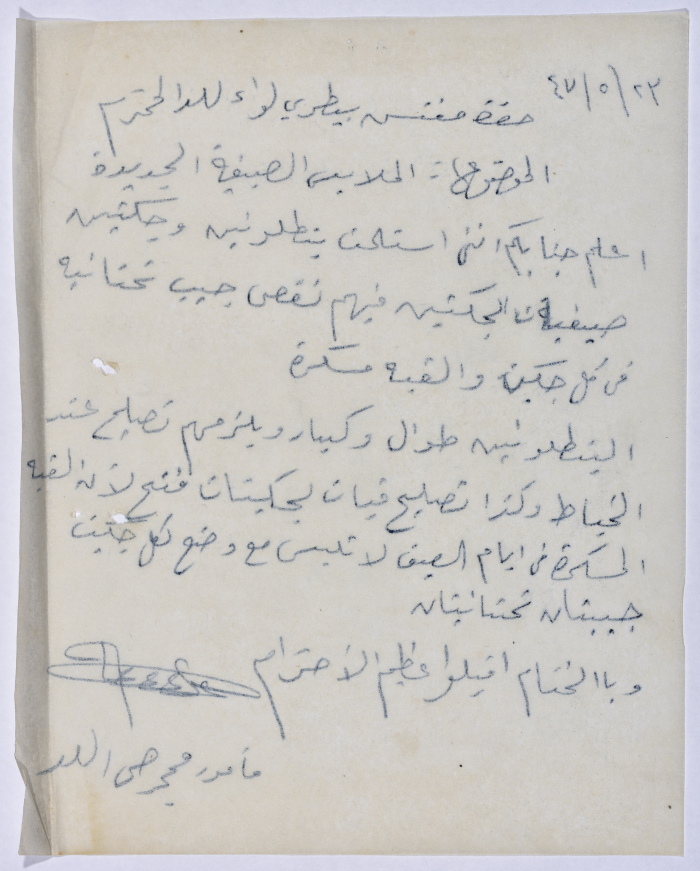 ٢٣/٥/٤٧
حضرة مفتش بيطري لواء اللد المحترم
الموضوع: الملابس الصيفية الجديدة
اعلم جنابكم انني استلمت بنطلونين وجكتين
صيفيات الجكتين فيهم نقص جيب تحتانيه
في كل جكيت والقبه مسكرة
البنطلونين طوال وكبار ويلزمهم تصليح عند
الخياط وكذا تصليح قبات لجكيتات فتح لأن القبه
المسكرة في ايام الصيف لا تلبس مع وضع لكل جكيت
جيبتان تحتانيتان
وبالختام اقبلوا عظيم الاحترام
مأمور محجر صحي اللد